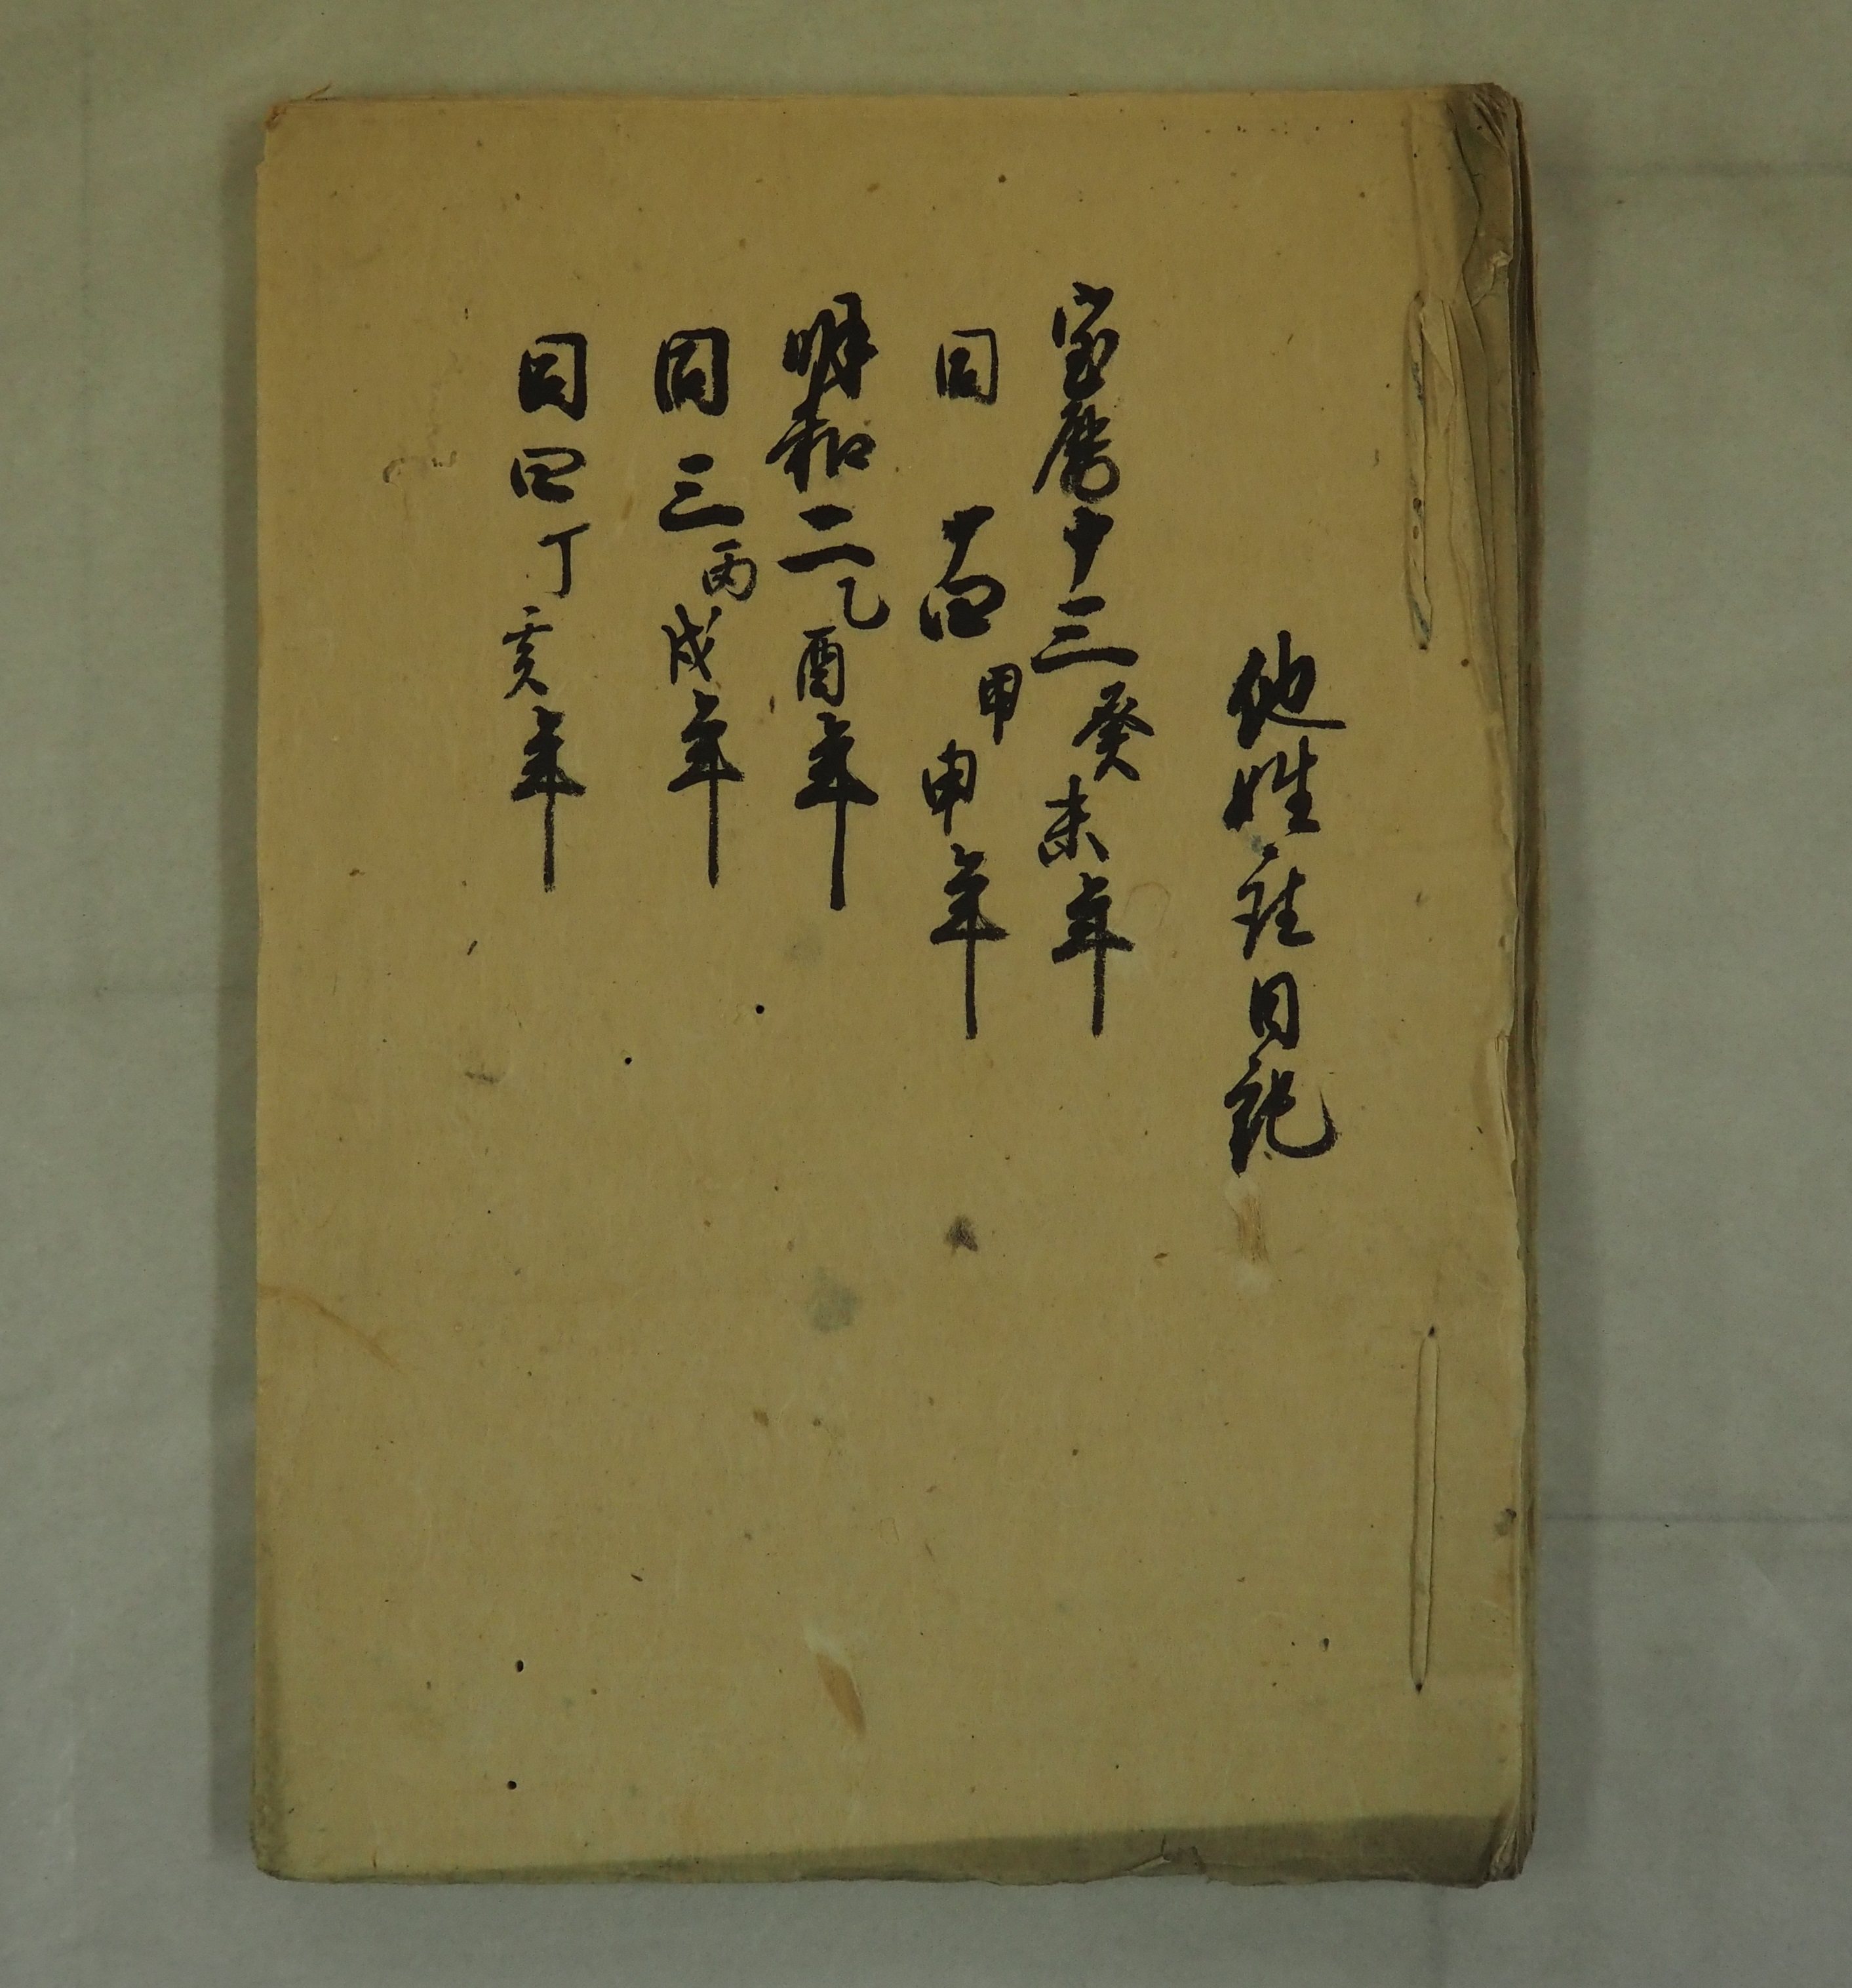 他姓証日記
宝暦十三癸未年
同 十四甲申年
明和二乙酉年
同三丙戌年
同四丁亥年